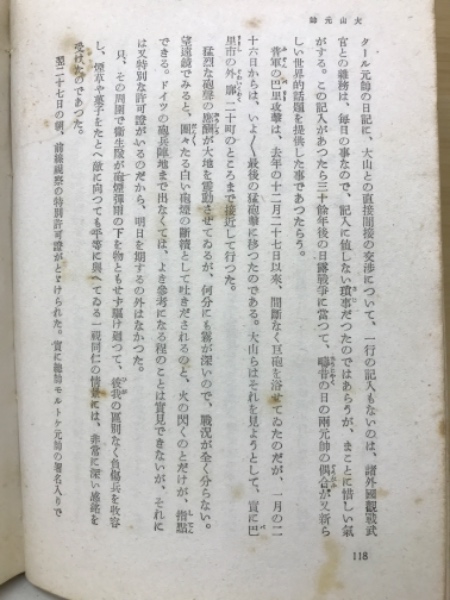 大山元帥
タール元帥の日記に、大山との直接間接の交渉について、一行の記入もないのは、諸外國觀戰武
官との雜務は、毎日の事なので、記入に値しない瑣事だつたのではあらうが、まことに惜しい氣
がする。この記入があつたら三十餘年後の日露戰爭に當つて、疇昔の日の兩元帥の偶合が又新ら
しい世界的話題を提供した事であつたらう。
普軍の巴里攻擊は、去年の十二月二十七日以來、間斷なく巨砲を浴せてゐたのだが、一月の二
十六日からは、いよ〱最後の猛砲擊に移つたのである。大山らはそれを見ようとして、實に巴
里市の外廓二十町のところまで接近して行つた。
猛烈な砲聲の應酬が大地を震動させてゐるが、何分にも霧が深いので、戰況が全く分らない。
望遠鏡でみると、團々たる白い砲煙の斷續として吐きだされるのと、火の閃くのとだけが、指點
できる。ドイツの砲兵陣地まで出なくては、よき參考になる程のことは實見できないが、それに
は又特別な許可證がいるのだから、明日を期するの外はなかつた。
只、その周圍で衞生隊が砲煙彈雨の下を物ともせず驅け廻つて、彼我の區別なく負傷兵を收容
し、煙草や菓子をたとへ敵に向つても平等に與へてゐる一視同仁の情景には、非常に深い感銘を
受けたのであつた。
翌二十七日の朝、前線視察の特別許可證がとゞけられた。實に總帥モルトケ元帥の署名入りで
118